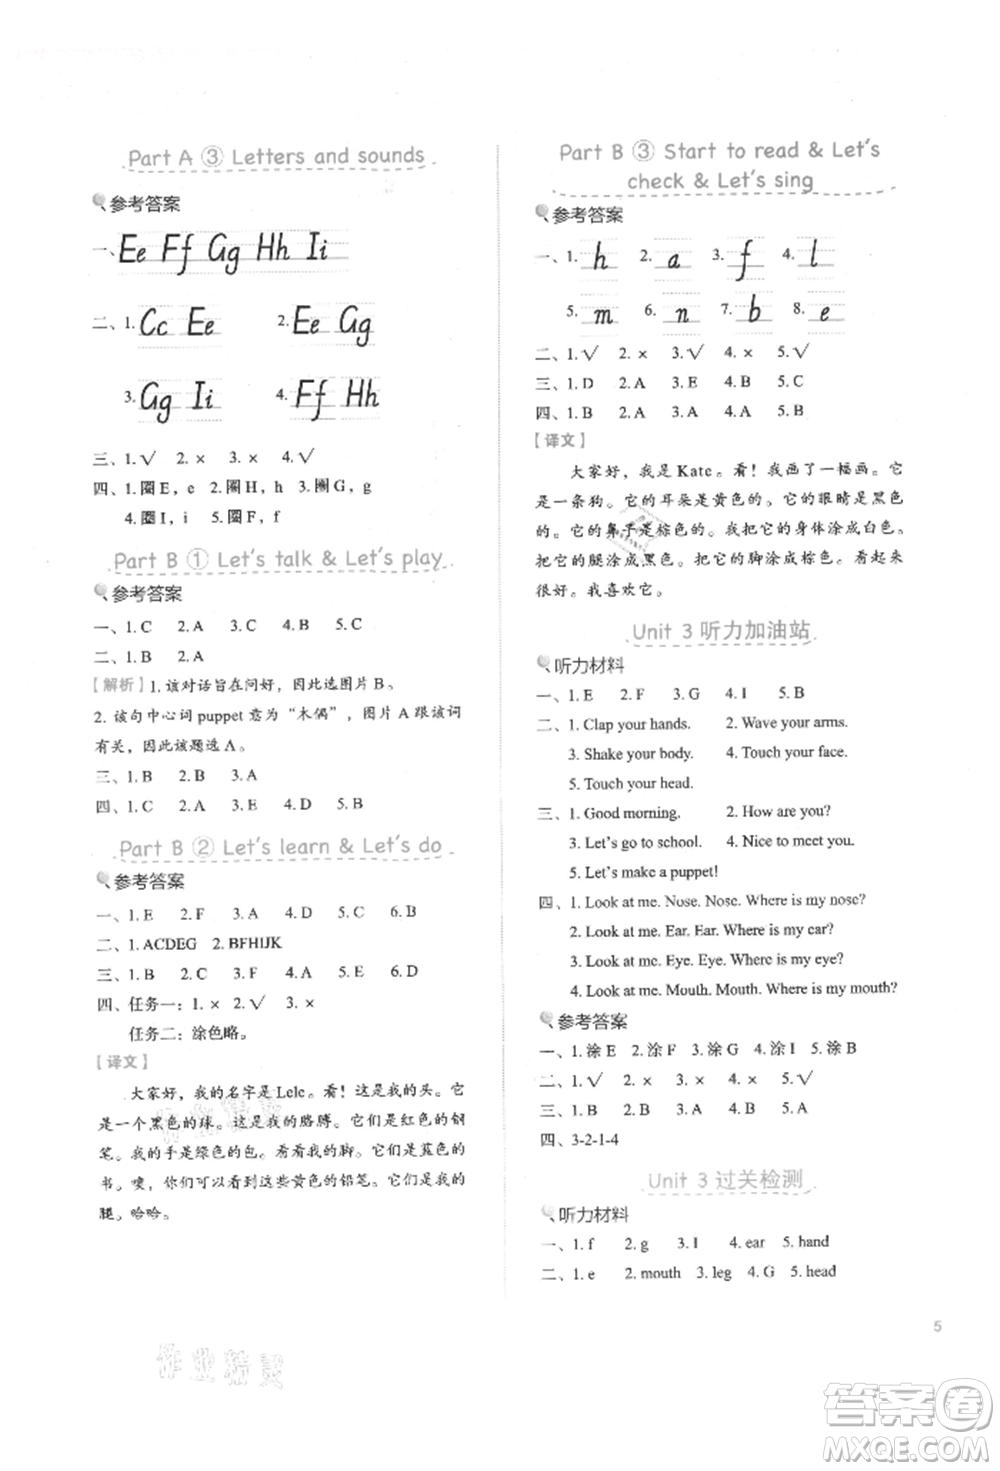 Part A ③ Letters and sounds
参考答案
一、Ee Ff Gg Hh Ii
二、1. Cc Ee 2. Ee Gg
3. Gg Ii 4. Ff Hh
三、1.√ 2.× 3.× 4.√
四、1.圈E，e 2.圈H，h 3.圈G，g
4.圈I，i 5.圈F，f
Part B ① Let's talk & Let's play
参考答案
一、1.C 2.A 3.C 4.B 5.C
二、1.B 2.A
【解析】1. 该对话旨在问好，因此选图片 B。
2. 该句中心词 puppet 意为“木偶”，图片 A 跟该词
有关，因此该题选 A。
三、1.B 2.B 3.A
四、1.C 2.A 3.E 4.D 5.B
Part B ② Let's learn & Let's do
参考答案
一、1.E 2.F 3.A 4.D 5.C 6.B
二、1.ACDEG 2.BFHIJK
三、1.B 2.C 3.A 4.A 5.B 6.C
四、任务一：1.× 2.√ 3.×
任务二：涂色略。
【译文】
大家好，我的名字是 Lele。看！这是我的头。它
是一个黑色的球。这是我的胳膊。它们是红色的钢
笔。我的手是绿色的包。看看我的脚。它们是蓝色的
书。噢，你们可以看到这些黄色的铅笔。它们是我的
腿，哈哈。
Part B ③ Start to read & Let's
check & Let's sing
参考答案
一、1. h 2. a 3. f 4. l
5. m 6. n 7. b 8. e
二、1.√ 2.× 3.√ 4.× 5.√
三、1.D 2.A 3.E 4.B 5.C
四、1.B 2.A 3.A 4.A 5.B
【译文】
大家好，我是 Kate。看！我画了一幅画。它
是一条狗。它的耳朵是黄色的。它的眼睛是黑色
的。它的鼻子是棕色的。我把它的身体涂成白色。
把它的腿涂成黑色。把它的脚涂成棕色。看起来
很好。我喜欢它。
Unit 3 听力加油站
听力材料
一、1. E 2. F 3. G 4. I 5. B
二、1. Clap your hands. 2. Wave your arms.
3. Shake your body. 4. Touch your face.
5. Touch your head.
三、1. Good morning. 2. How are you?
3. Let's go to school. 4. Nice to meet you.
5. Let's make a puppet!
四、1. Look at me. Nose. Nose. Where is my nose?
2. Look at me. Ear. Ear. Where is my ear?
3. Look at me. Eye. Eye. Where is my eye?
4. Look at me. Mouth. Mouth. Where is my mouth?
参考答案
一、1.涂E 2.涂F 3.涂G 4.涂I 5.涂B
二、1.√ 2.× 3.× 4.√ 5.√
三、1.B 2.B 3.A 4.B 5.A
四、3-2-1-4
Unit 3 过关检测
听力材料
一、1. f 2. g 3. I 4. ear 5. hand
二、1. e 2. mouth 3. leg 4. G 5. head
5
作业精灵
答案卷
MXQE.COM